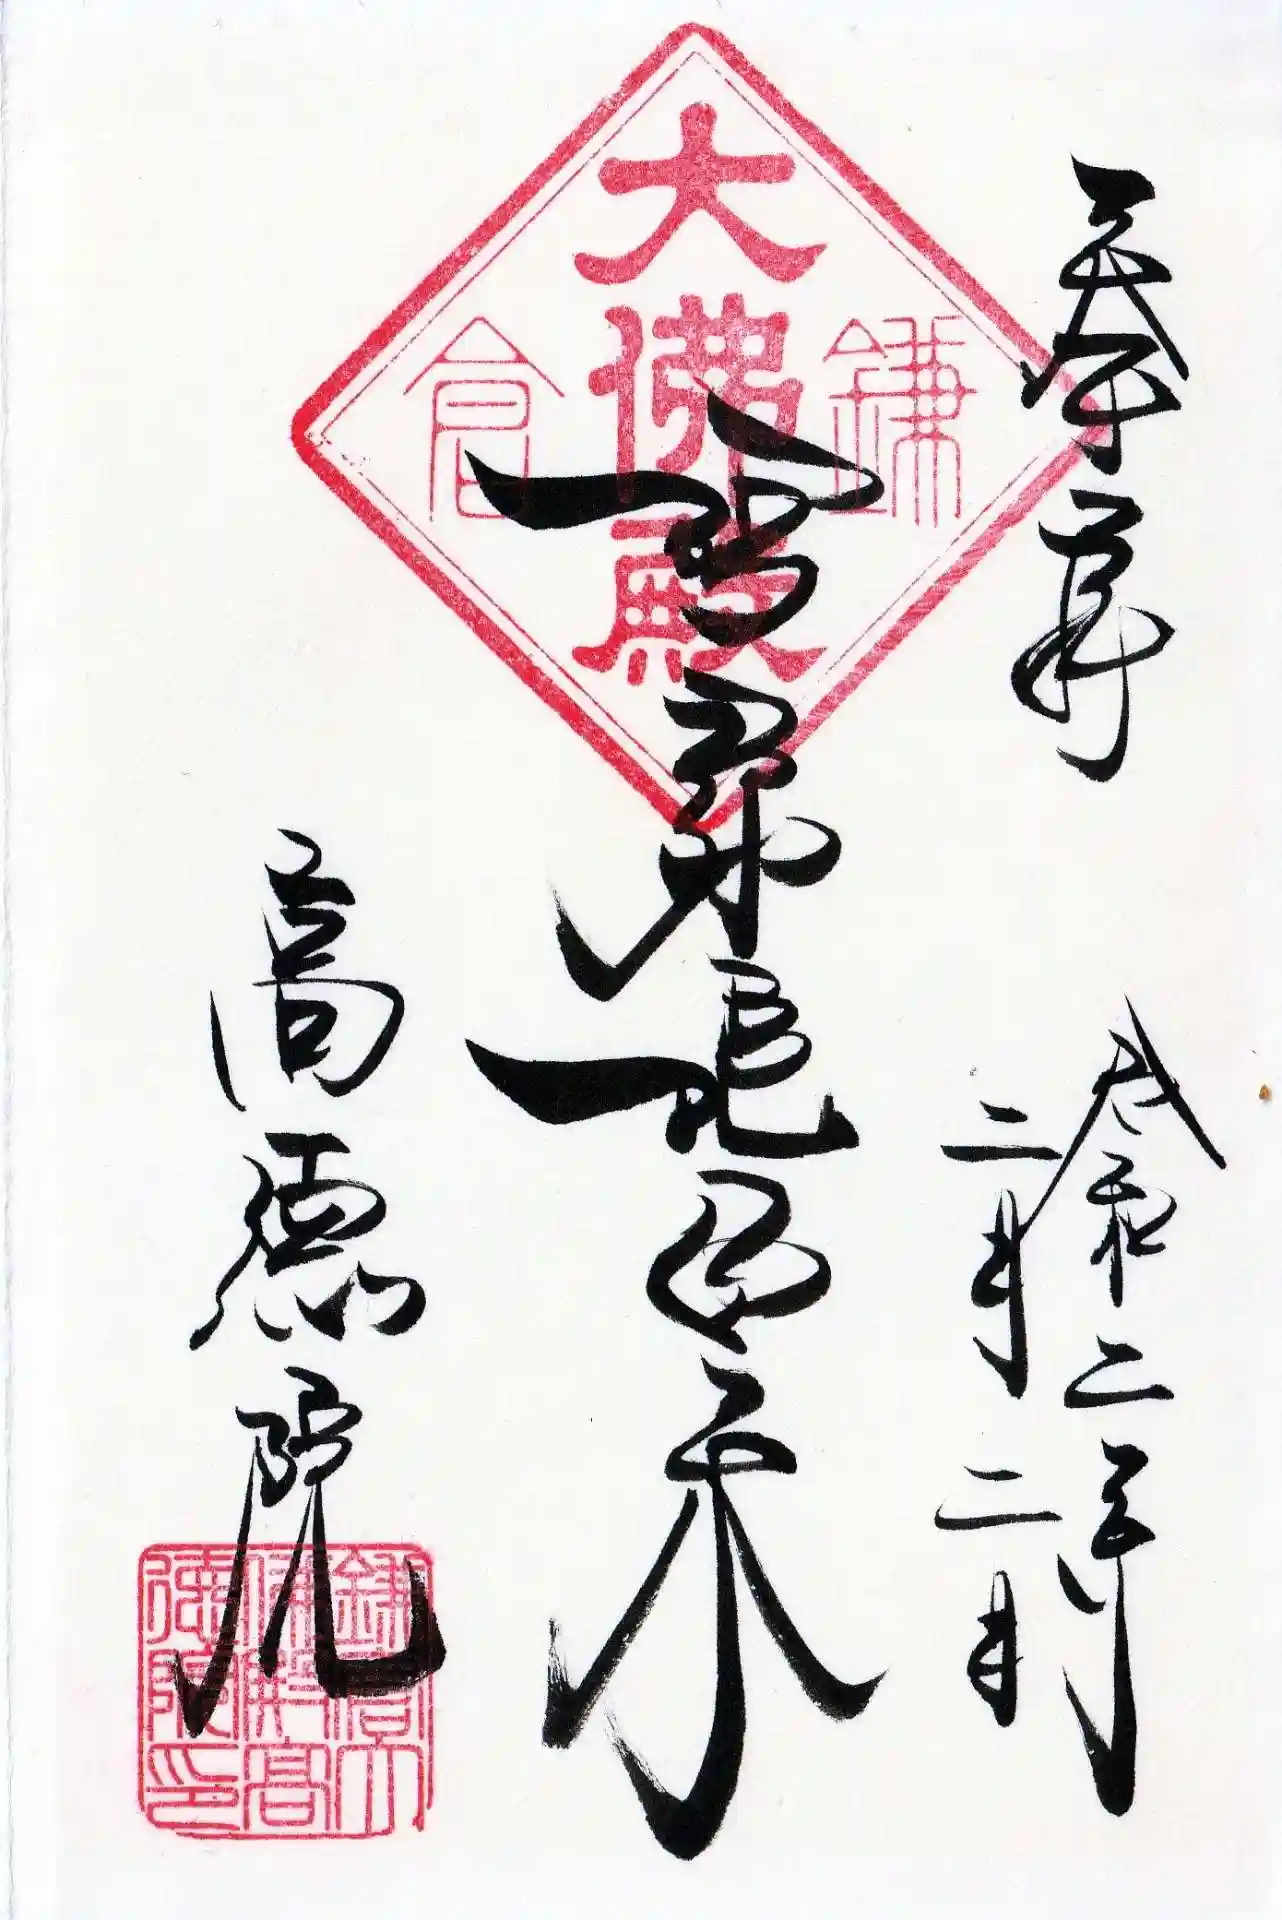 奉拝
令和二年
二月二日
大佛殿
鎌倉
阿弥陀如来
高徳院
鎌倉大
佛殿高
德院印